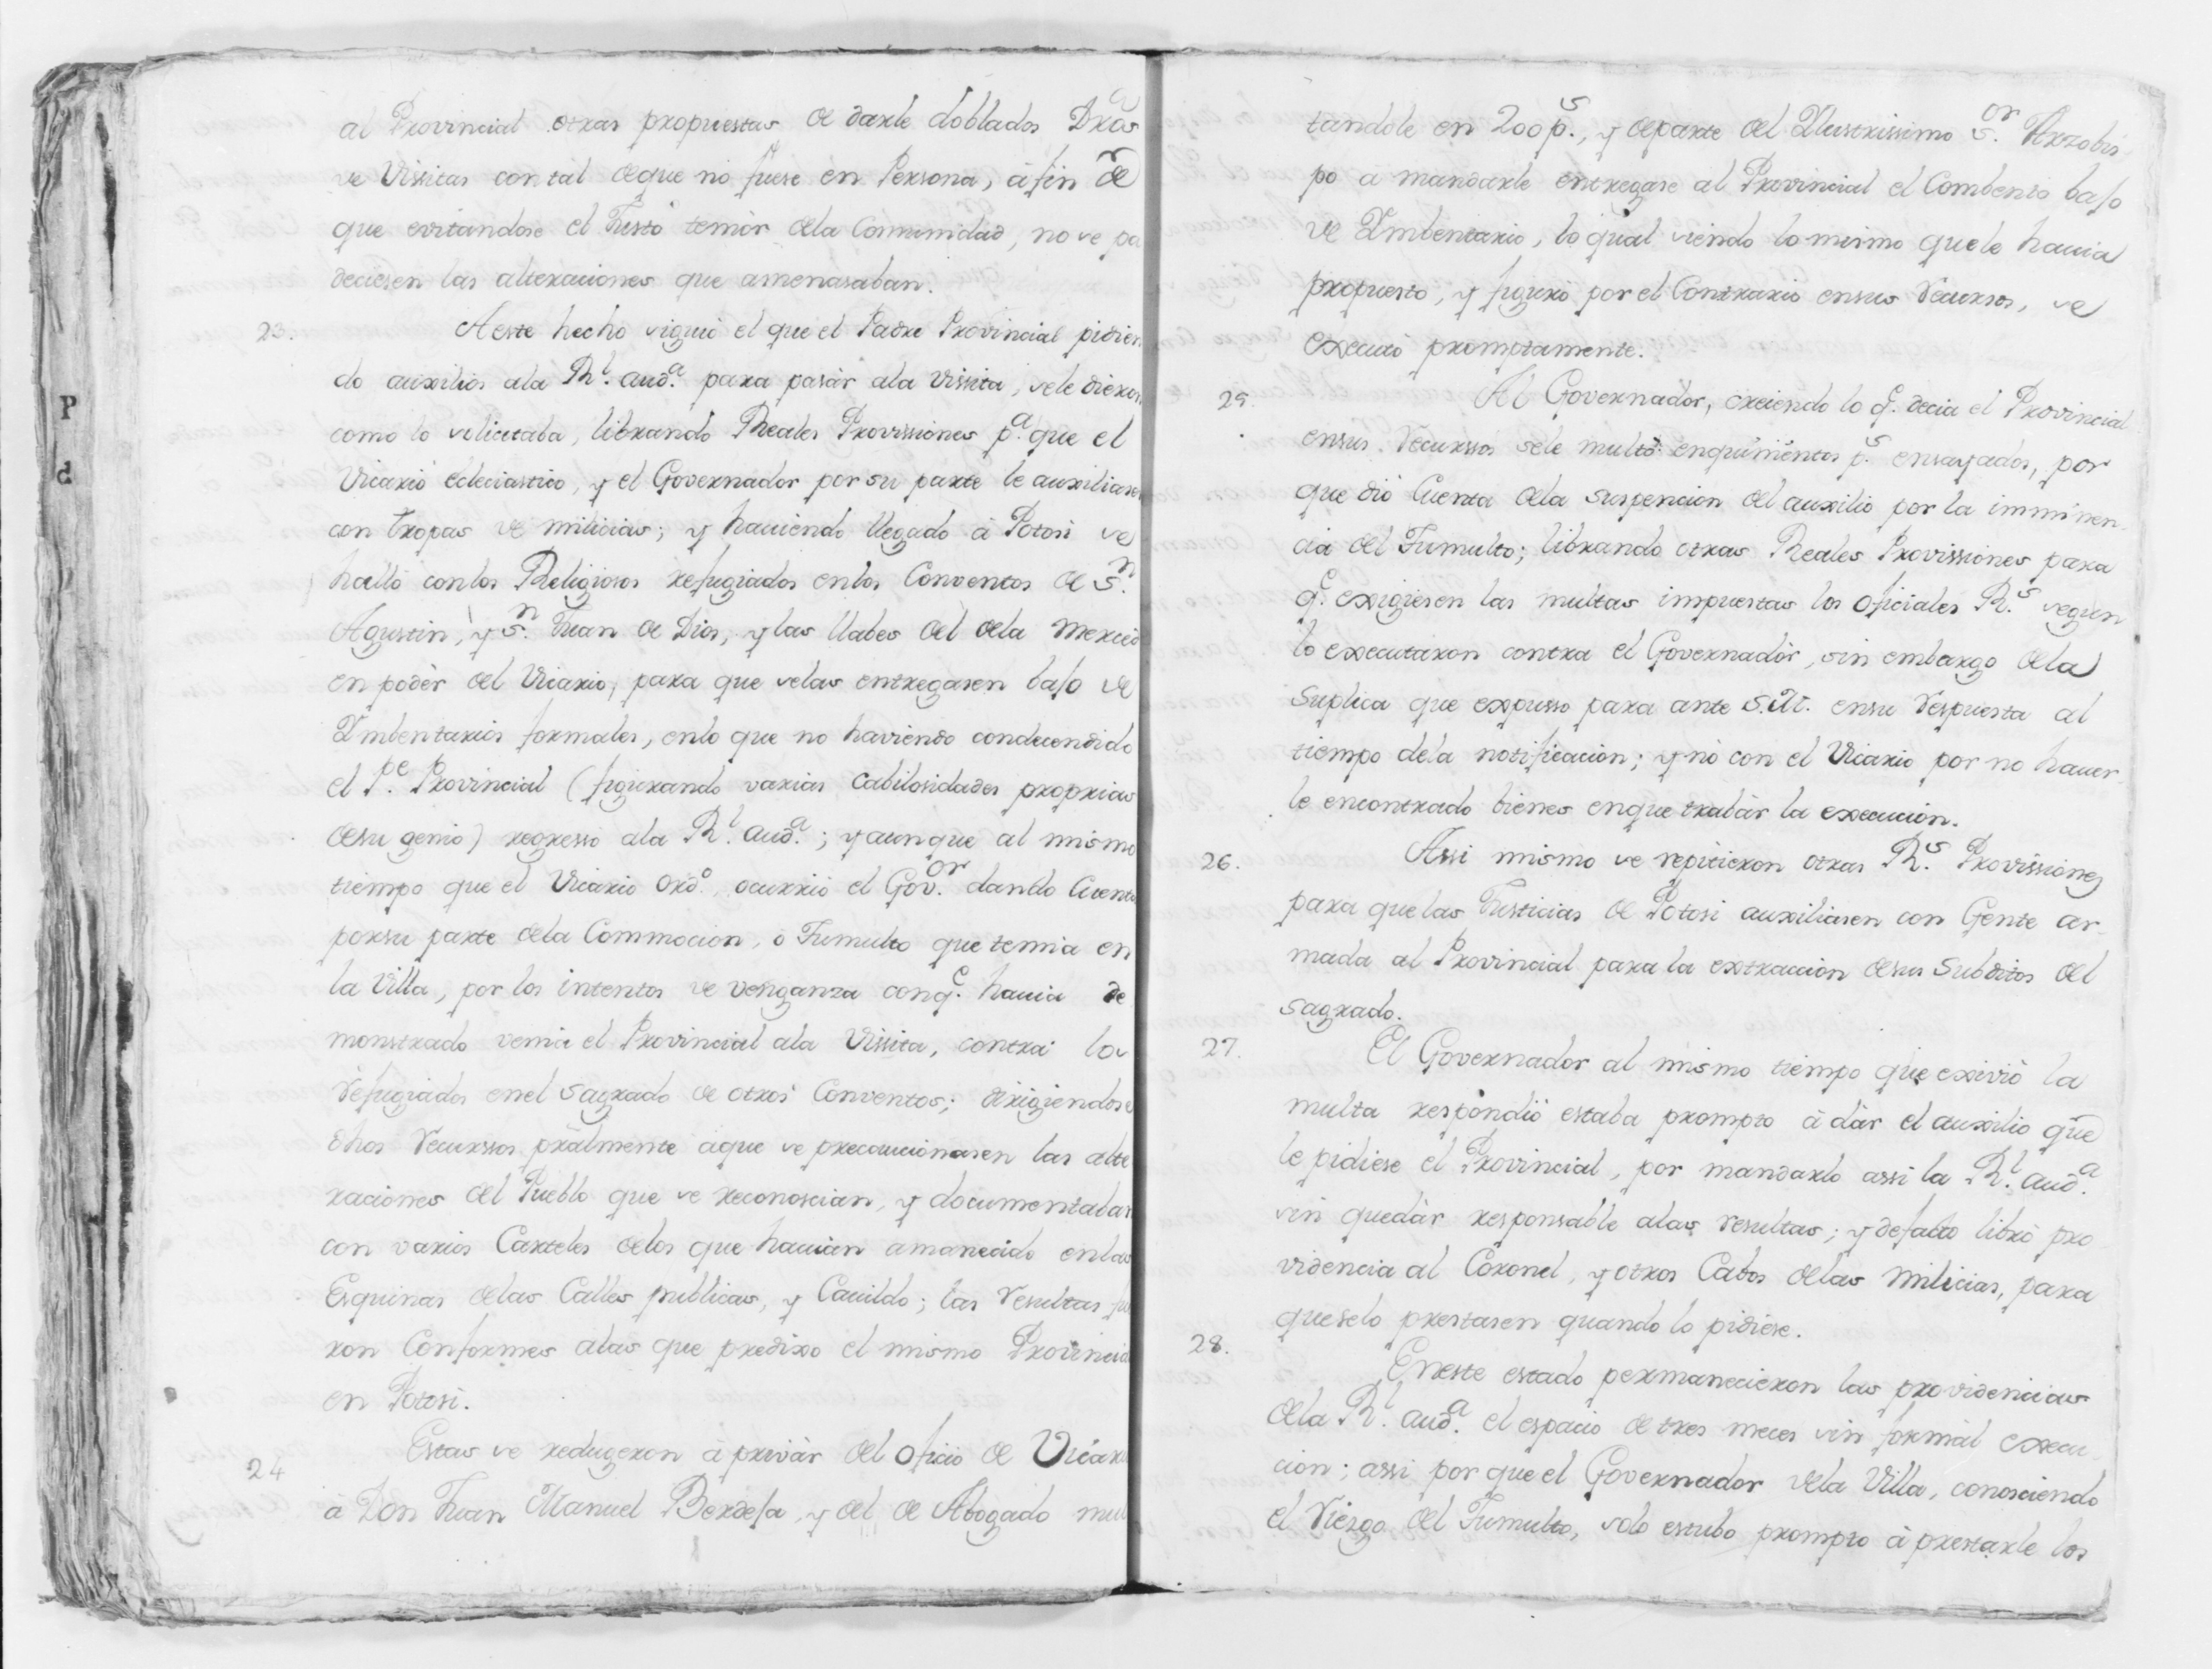 al Provincial otras propuestas de darle doblados Dros
se Vissitas con tal deque nó fuese en Persona, á fin de
que evitandose el Justo temór dela Comunidad, no se pa
deciesen las alteraciones que amenasaban.
23. A este hecho siguió el que el Padre Provincial pidien
do auxilios ala Rl. audª. para pasár ala Vissita, sele dieron
como lo solicitaba, librando Reales Provissiones pª. que el
Vicario ecleciastico, y el Governador por su parte le auxiliasen
con tropas de milicias; y haviendo llegado á Potosi se
halló conlos Religiosos refugiados enlos Conventos de Sn.
Agustin, y Sn. Juan de Dios, y las llabes del dela merced
en podér del Vicario, para que selas entregasen bajo de
Ymbentarios formales, enlo que no haviendo condecendido
el Pe. Provincial (figurando varias Cabilosidades proprias
desu genio) regresó ala Rl. audª.; y aunque al mismo
tiempo que el Vicario ordº. ocurrió el Govor. dando Cuenta
porsu parte dela Commocion, ó Tumulto que temia en
la Villa, por los intentos de venganza conqe. havia de
monstrado venia el Provincial ala Vissita, contra los
refugiados enel Sagrado de otros Conventos; dirigiendose
dhos Recurssos prãlmente aque se precaucionasen las alte
raciones del Pueblo que se reconoscian, y documentaban
con varios Carteles delos que havian amanecido enlas
Esquinas delas Calles publicas, y Cavildo; las Resultas fue
ron Conformes alas que predixo el mismo Provincial
en Potosi.
24 Estas se redugeron á privár del Oficio de Vicario
á Don Juan Manuel Berdeja, y del de Abogado mul
tandole en 200 ps., y departe del Yllustrissimo Sor. Arzobis
po á mandarle entregase al Provincial el Combento bajo
de Ymbentario, lo qual siendo lo mismo quele havia
propuesto, y figuró por el Contrario ensus Recursos, se
executó promptamente.
25. Al Governador, creiendo lo qe. decia el Provincial
ensus Recurssos sele multó enquinientos ps. ensayados, por
que dió Cuenta dela suspencion del auxilio por la imminen
cia del Tumulto; librando otras Reales Provissiones para
qe. exigiesen las multas impuestas los oficiales Rs. segun
lo executaron contra el Governadór, sin embargo dela
Suplica que expusso para ante S.M. ensu Respuesta al
tiempo dela notificacion; y nó con el Vicario por no haver
le encontrado bienes enque trabár la execucion.
26. Assi mismo se repitieron otras Rs. Provissiones
para quelas Justicias de Potosi auxiliasen con Gente ar
mada al Provincial para la extraccion desus Subditos del
Sagrado.
27. El Governador al mismo tiempo que exivió la
multa respondió estaba prompto á dár el auxilio que
le pidiese el Provincial, por mandarlo assi la Rl. audª.
sin quedár responsable alas resultas; y defacto libró pro
videncia al Coronel, y otros Cabos delas Milicias, para
queselo prestasen quando lo pidiese.
28. Eneste estado permanecieron las providencias
dela Rl. audª. el espacio de tres meces sin formál execu
cion; assi por que el Governador dela Villa, conosciendo
el Riesgo del Tumulto, solo estubo prompto á prestarle los